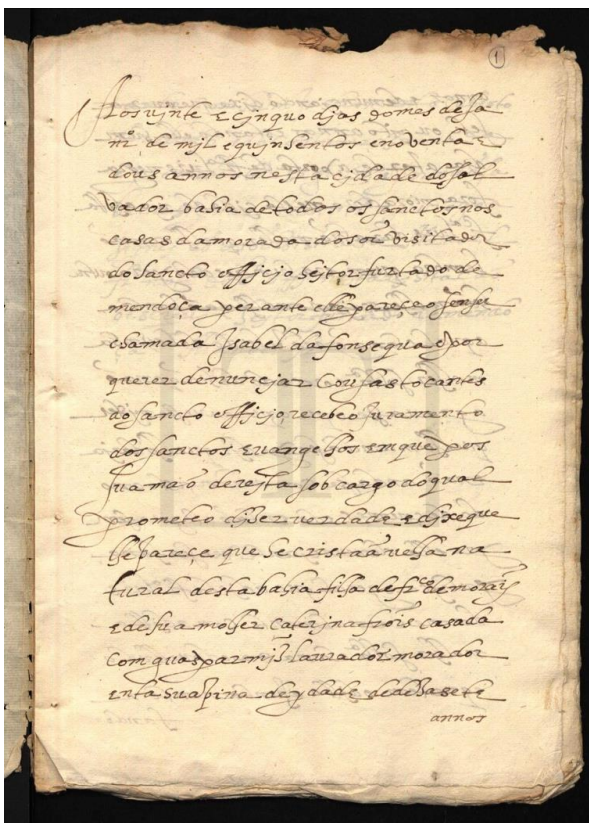 1
Aos vinte E cinquo djas do mes de Ja
nro de mil e quinsentos e noventa E
dous annos nesta cjdade do sal
vador bahia de todos os sanctos nos
casas da morada do sor visitador
do sancto officjo heitor furtado de
mendoça perante elle pareçeo sen su
chamada Isabel da fonsequa E por
querer denuncjar cousas tocantes
do sancto officjo, recebeo Juramento
dos sanctos Evangelhos Em que pos
sua mão dereita sob cargo do qual
prometeo djzer verdade E djxe que
lhe pareçe que he cristaã velha na
tural desta bahia filha de frco de morais
E de sua molher Caterjna frois casada
Com guaspar miz laurador morador
En tasuapina de ydade de dezasete
annos